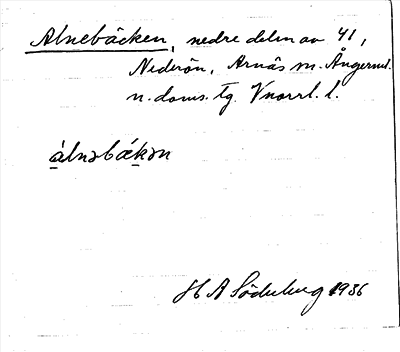 Alnebäcken, nedre delen av 41,
Nederön, Arnäs sn. Ångerml.
n. doms. tg. Vnorrl. l.
álnəbákən
H A Söderberg 1936